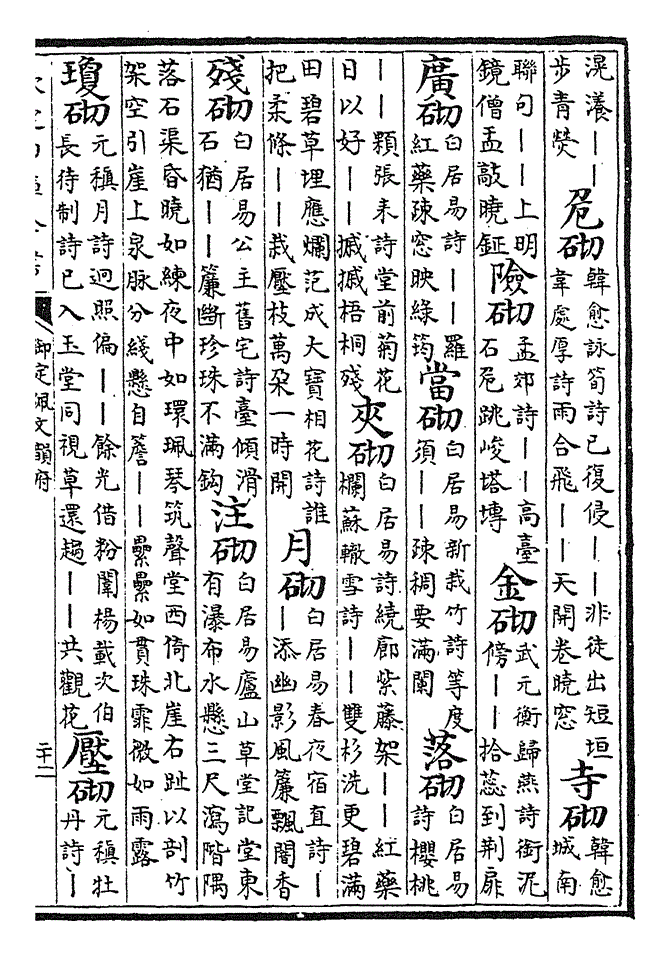 滉瀁丨丨步青熒 危砌 韓愈詠筍詩已復侵丨丨非徒出短垣韋處厚詩雨合飛丨丨天開卷曉窓 寺砌 韓愈城南
聯句丨丨上明鏡僧盂敲曉鉦 險砌 孟郊詩丨丨高臺石危跳峻塔塼 金砌 武元衡歸燕詩銜泥傍丨丨拾蕊到荆扉
廣砌 白居易詩丨丨羅紅藥疎窓映綠筠 當砌 白居易新栽竹詩等度須丨丨疎稠要滿闌 落砌 白居易詩櫻桃
丨丨顆張耒詩堂前菊花日以好丨丨摵摵梧桐殘 夾砌 白居易詩繞廊紫藤架丨丨紅藥欄蘇轍雪詩丨丨雙杉洗更碧滿
田碧草埋應爛范成大寶相花詩誰把柔條丨丨栽壓枝萬朶一時開 月砌 白居易春夜宿直詩丨丨添幽影風簾飄闇香
殘砌 白居易公主舊宅詩臺傾滑石猶丨丨簾斷珍珠不滿鈎 注砌 白居易廬山草堂記堂東有瀑布水懸三尺瀉階隅
落石渠昏曉如練夜中如環珮琴筑聲堂西倚北崖右趾以剖竹架空引崖上泉脉分綫懸自簷丨丨纍纍如貫珠霏微如雨露
瓊砌 元稹月詩迥照偏丨丨餘光借粉闈楊載次伯長待制詩已入玉堂同視草還趨丨丨共觀花 壓砌 元稹牡丹詩丨
御定佩文韻府